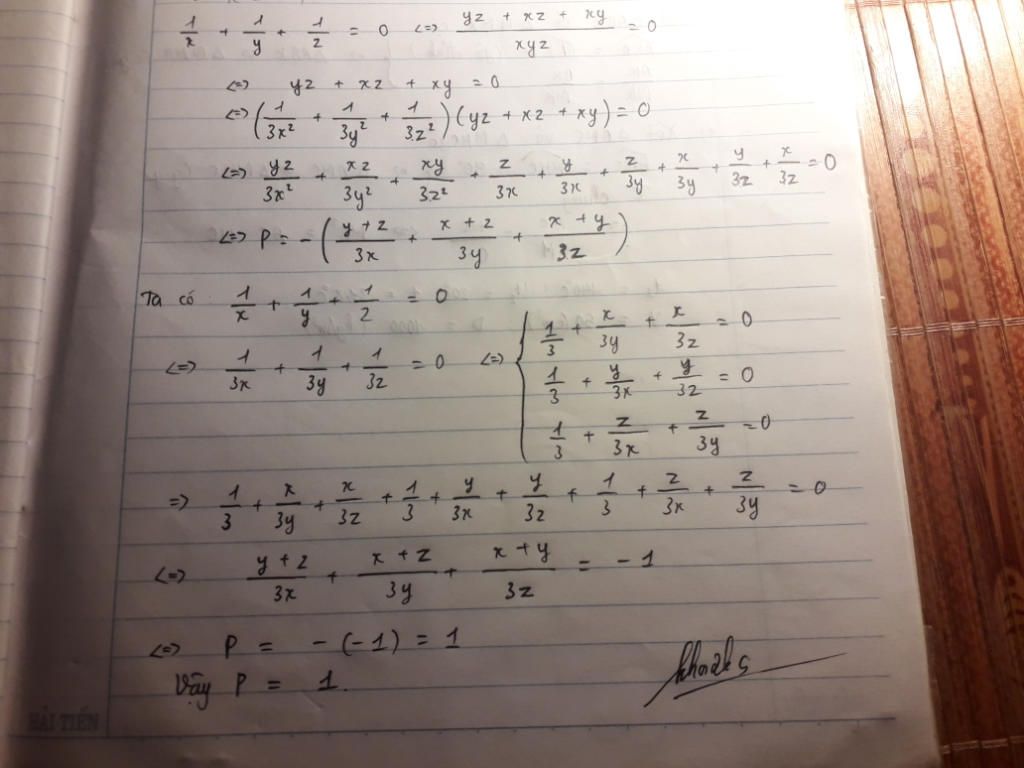 1/x + 1/y + 1/z = 0 <=> (yz + xz + xy)/(xyz) = 0
<=> yz + xz + xy = 0
<=> (1/(3x²) + 1/(3y²) + 1/(3z²)) (yz + xz + xy) = 0
<=> yz/(3x²) + xz/(3y²) + xy/(3z²) + z/(3x) + y/(3x) + z/(3y) + x/(3y) + y/(3z) + x/(3z) = 0
<=> P = - ((y + z)/(3x) + (x + z)/(3y) + (x + y)/(3z))
Ta có 1/x + 1/y + 1/z = 0
<=> 1/(3x) + 1/(3y) + 1/(3z) = 0 <=> { 1/3 + x/(3y) + x/(3z) = 0
1/3 + y/(3x) + y/(3z) = 0
1/3 + z/(3x) + z/(3y) = 0
=> 1/3 + x/(3y) + x/(3z) + 1/3 + y/(3x) + y/(3z) + 1/3 + z/(3x) + z/(3y) = 0
<=> (y + z)/(3x) + (x + z)/(3y) + (x + y)/(3z) = - 1
<=> P = - (-1) = 1
Vậy P = 1.
HẢI TIẾN